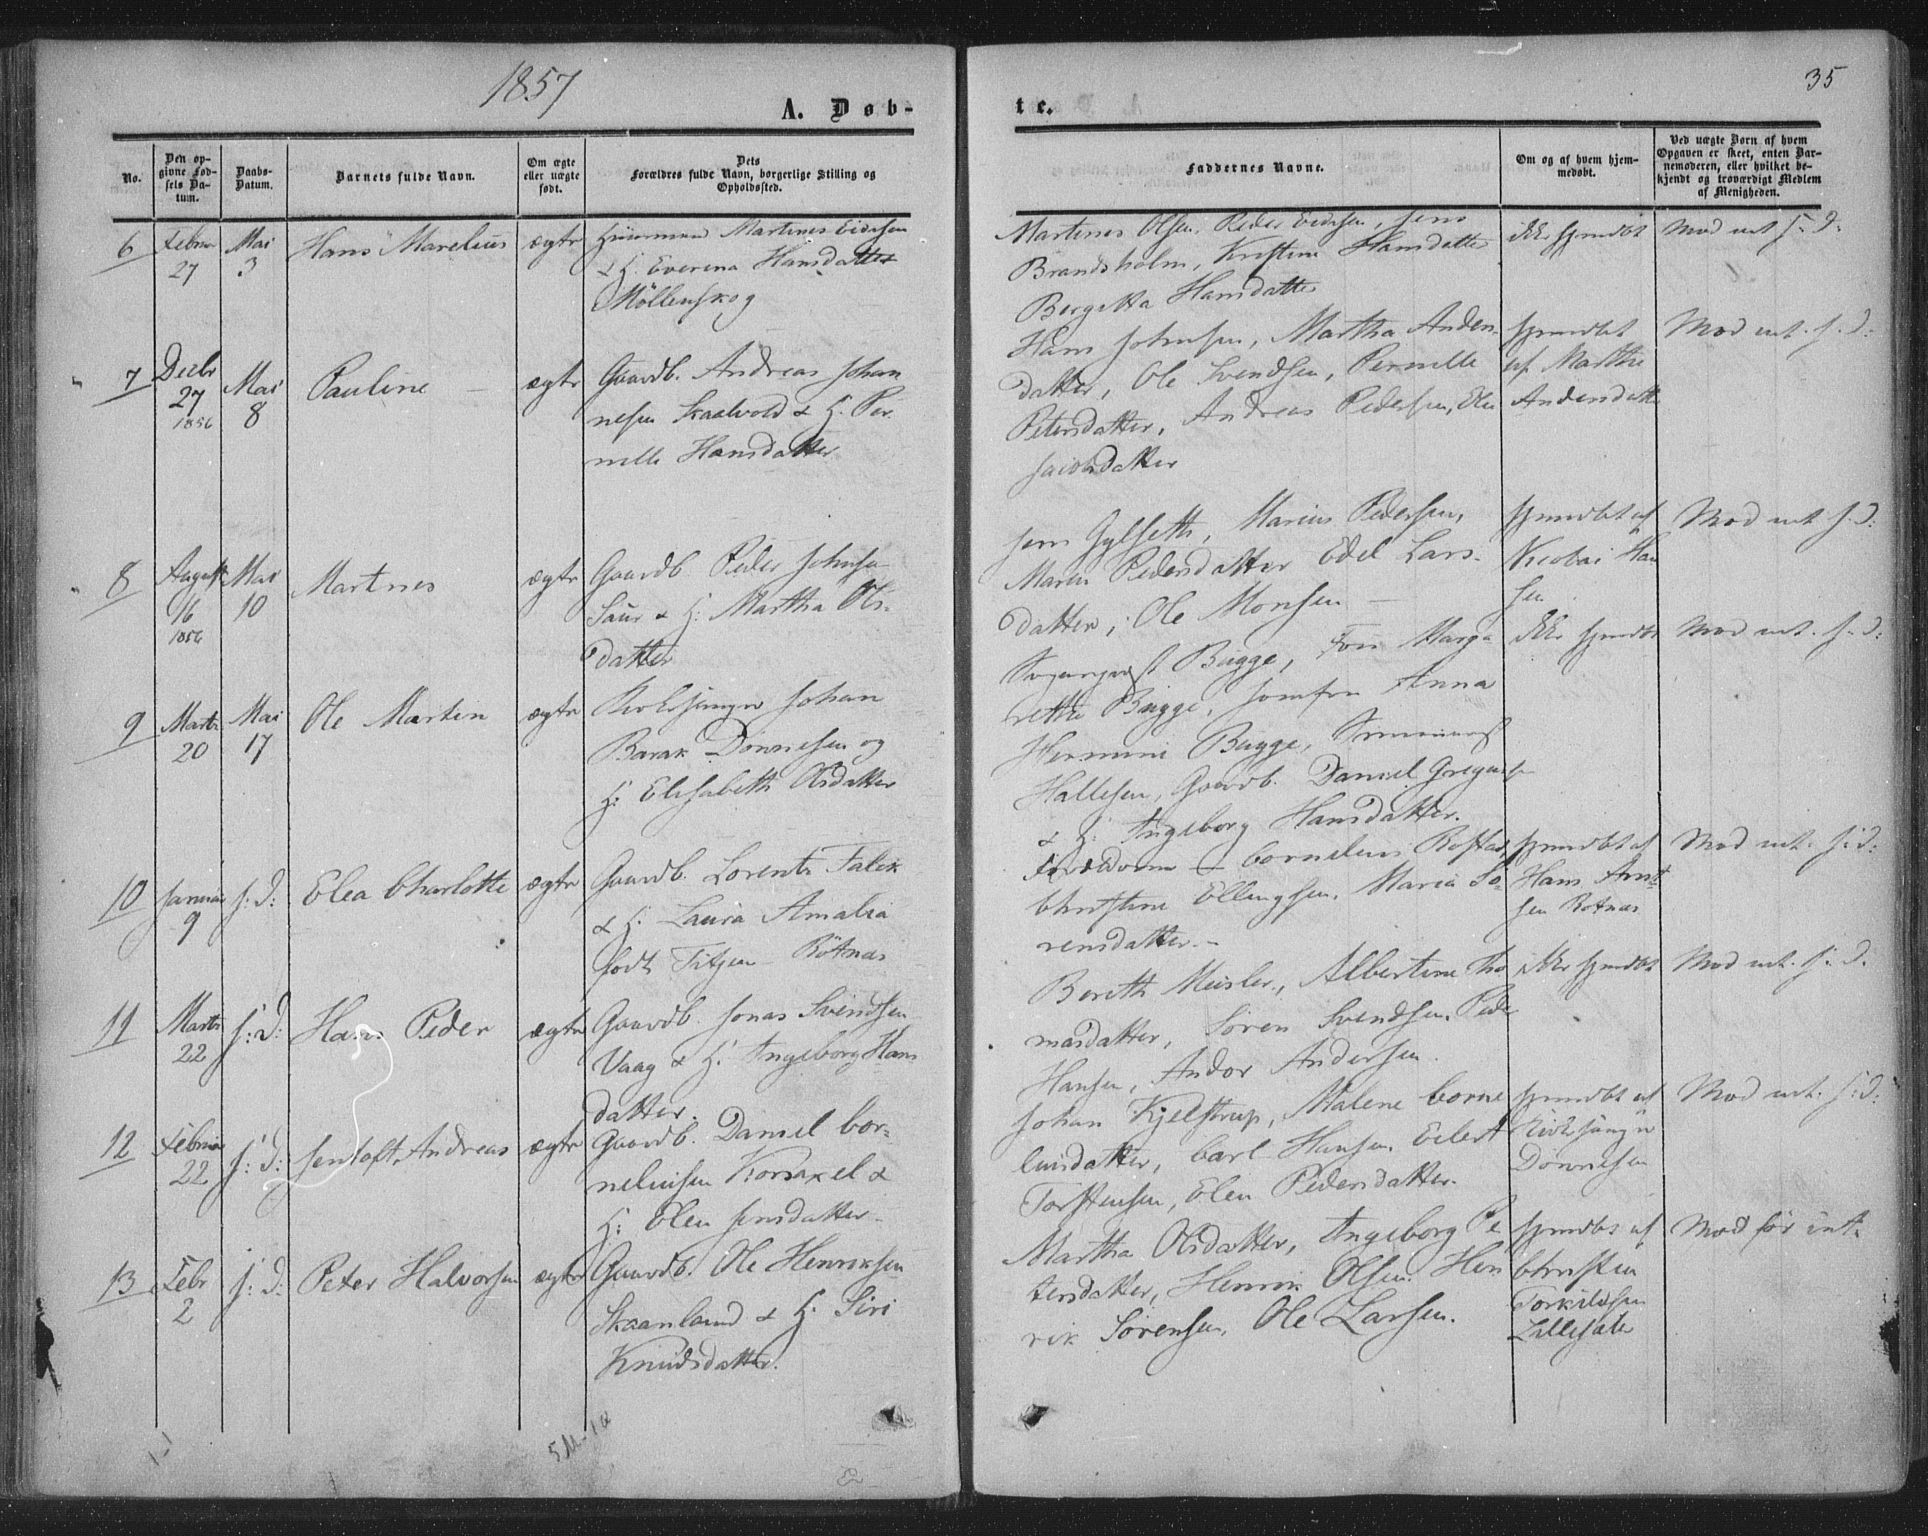 1857
35
A. Døb-
te.
No.
Den op-
givne Fød-
sels Da-
tum.
Daabs-
Datum.
Barnets fulde Navn.
Om ægte
eller uægte
født.
Dets
Forældres fulde Navn, borgerlige Stilling og
Opholdssted.
Faddernes Navne.
Om og af hvem hjem-
medøbt.
Ved uægte Børn af hvem
Opgaven er skeet, enten Bar-
nemoderen, eller hvilket be-
kjendt og troværdigt Medlem
af Menigheden.
6
Februar
27
Mai
3
Hans Marelius
ægte
Huusmand Martines
& H. Everena Hansdatter
Møllenskog
Martines Olsen, Peder Eidisen, Jens
Brandsholm, Kristine Hansdatter
Bergitta Hansdatter
ikke hjemdøbt
Mod int. f. D:
7
Decbr
27
1856
Mai
8
Pauline
ægte
Gaardb. Andreas Johan
nesen Skaalvold & H. Per
nelle Hansdatter
Hans Johnsen, Martha Anders-
datter, Ole Svendsen, Pernelle
Petersdatter, Andreas Pedersen, Elen
datter
hjemdøbt
af Martha
Andersdatter
Mod int. f. D:
8
August
16
1856
Mai
10
Martnes
ægte
Gaardb Peder Johnsen
Saur & H: Martha Ols-
datter
Jens Gylseth, Marius Pedersen,
Maren Pedersdatter Edel Lars-
datter, Ole Monsen
hjemdøbt af
Nicolai Han
sen
Mod int f. D:
9
Marts
20
Mai
17
Ole Marten
ægte
Kirkesanger Johan
Barak Dønnesen og
H: Elisabeth Olsdatter
Sogneprest Bugge, Fru Marga
rethe Bugge, Jomfru Anna
Hermine Bugge, Seminarist
Hallesen, Gaardb. Daniel Gregusen
& H: Ingeborg Hansdatter.
ikke hjemdøbt
Mod int. f. D:
10
Januar
9
f. D:
Elea Charlotte
ægte
Gaardb. Lorents Falck
& H. Laura Amalia
født Titjen Røtnæs
Cornelius Rostad,
Christine Ellingsen, Maria Sø-
rensdatter.-
hjemdøbt af
Hans Arnt
sen Røtnæs
Mod int. f: d:
11
Marts
22
f: D:
Hans Peder
ægte
Gaardb. Jonas Svendsen
Vaag & H. Ingeborg Hans
datter.
Bereth Meisler, Albertine Tho
masdatter, Søren Svendsen, Peder
Hansen, Andor Andersen.
ikke hjemdøbt
Mod int. f: D.
12
Februar
22
f: D:
Jentoft Andreas
ægte
Gaardb. Daniel Cor-
neliusen Korsaxel &
H: Elen Jensdatter-
Johan Kjelstrup, Malene Corne
liusdatter, Carl Hansen, Eilert
Torstensen, Elen Pedersdatter.
hjemdøbt af
Kirkesanger
Dønnesen
Mod int. f: D:
13
Febr
2
f: D:
Peter Halvorsen
ægte
Gaardb. Ole Henriksen
Skaanland & H. Siri
Knudsdatter.
Martha Olsdatter, Ingeborg Pe
tersdatter, Henrik Olsen, Hen
rik Sørensen, Ole Larsen.
hjemdøbt af
Christen
Torkildsen
Lillesæter
Mod før int.